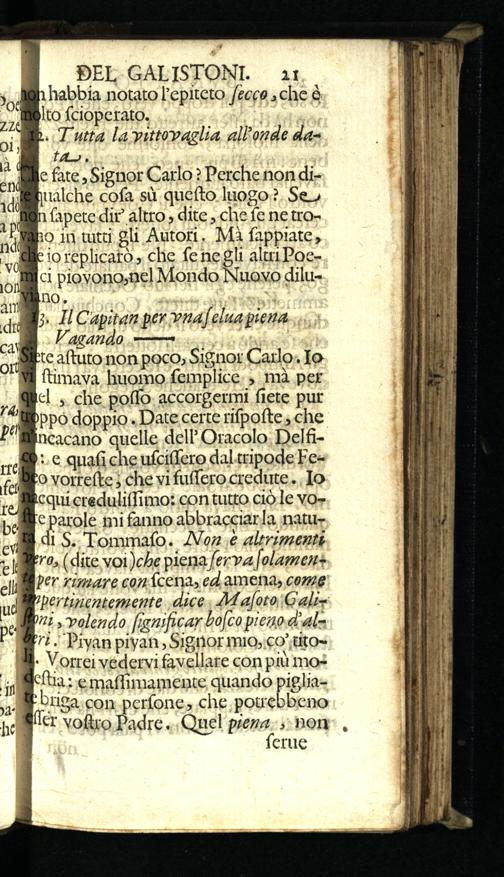 DEL GALISTONI. 21
non habbia notato l'epiteto ſecco, che è
molto ſcioperato.
12. Tutta la vittovaglia all'onde da-
ta.
Che fate, Signor Carlo? Perche non di-
te qualche coſa sù queſto luogo? Se
non ſapete dir' altro, dite, che ſe ne tro-
vano in tutti gli Autori. Mà ſappiate,
che io replicarò, che ſe negli altri Poe-
mi ci piovono, nel Mondo Nuovo dilu-
viano.
13. Il Capitan per vna ſelua piena
Vagando ——
Siete aſtuto non poco, Signor Carlo. Io
vi ſtimava huomo ſemplice, mà per
quel, che poſſo accorgermi ſiete pur
troppo doppio. Date certe riſpoſte, che
n'incacano quelle dell'Oracolo Delfi-
co: e quaſi che uſciſſero dal tripode Fe-
beo vorreſte, che vi fuſſero credute. Io
nacqui creduliſſimo: con tutto ciò le vo-
ſtre parole mi fanno abbracciar la natu-
ra di S. Tommaſo. Non è altrimenti
vero, (dite voi) che piena ſerva ſolamen-
te per rimare con ſcena, ed amena, come
impertinentemente dice Maſoto Gali-
ſtoni, volendo ſignificar boſco pieno d'al-
beri. Piyan piyan, Signor mio, co' tito-
li. Vorrei vedervi favellare con più mo-
deſtia: e maſſimamente quando piglia-
te briga con perſone, che potrebbeno
eſſer voſtro Padre. Quel piena, non
ſerue